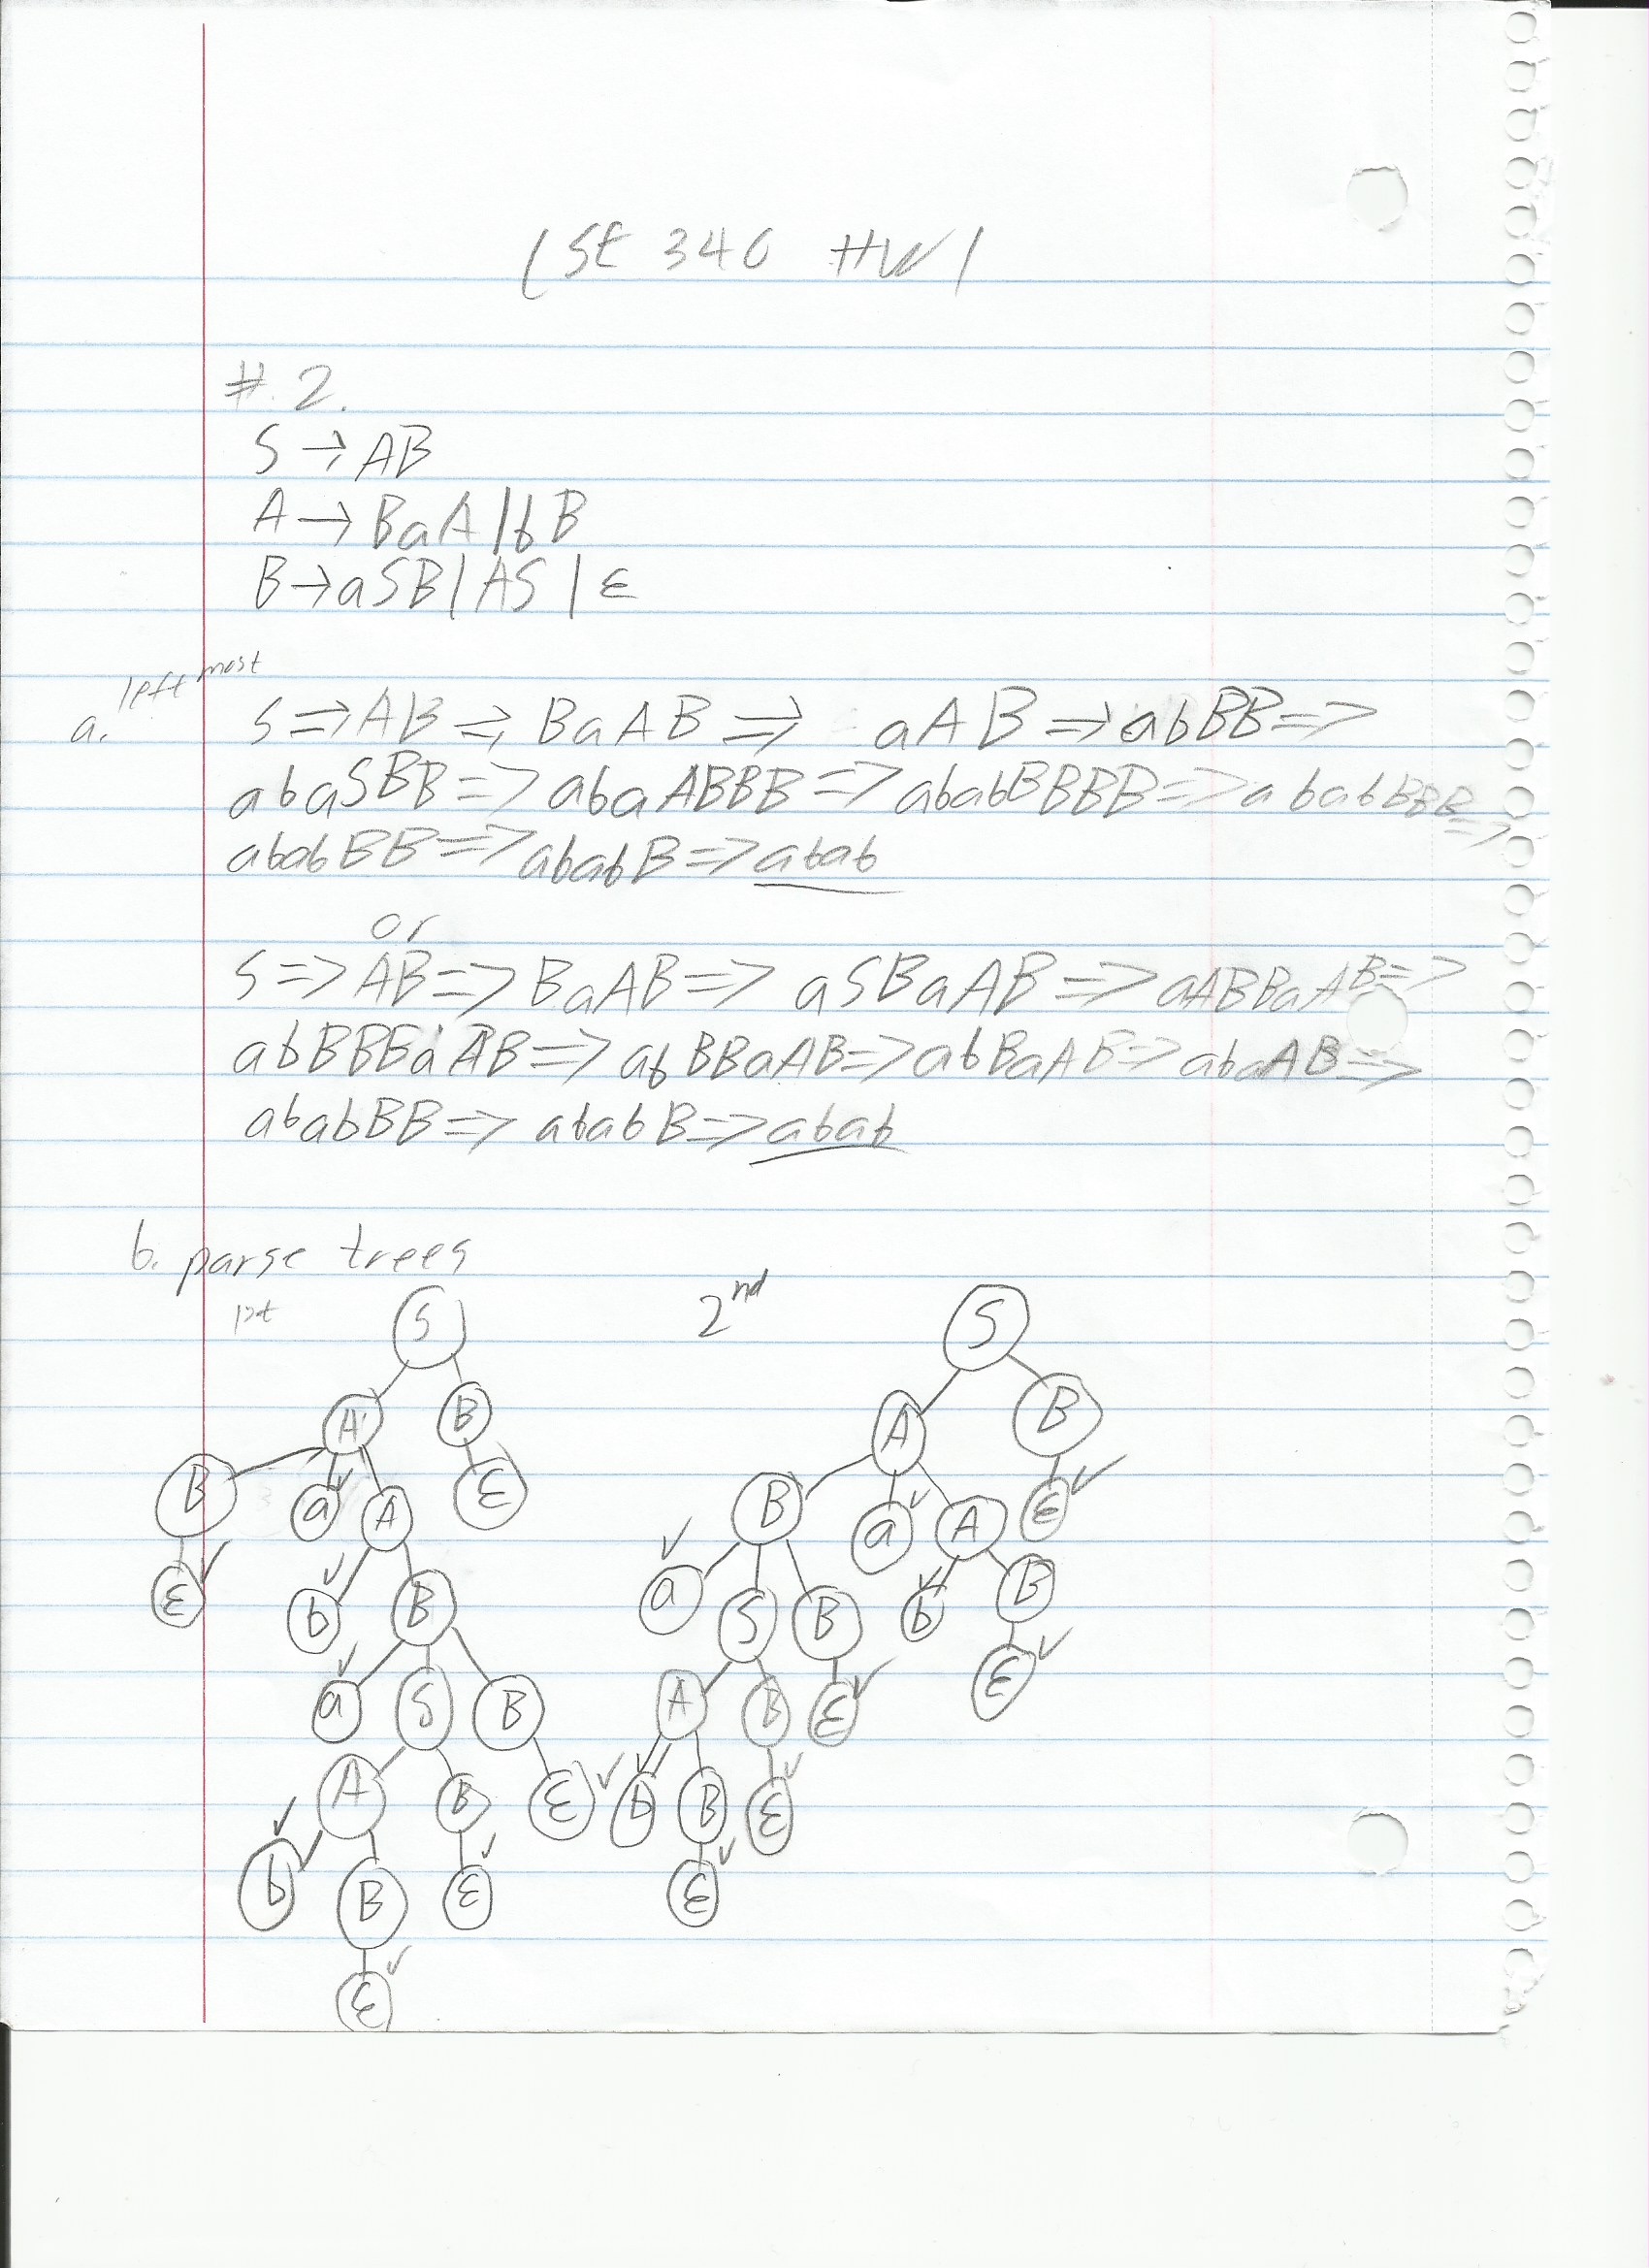 CSE 340 HW1
#.2.
S → AB
A → BaA | bB
B → aSB | AS | ε
a. leftmost
S => AB => BaAB => aAB => abBB =>
abaSBB => abaABBB => ababBBBB => ababBBB =>
ababBB => ababB => abab
or
S => AB => BaAB => aSBaAB => aABBaAB =>
abBBBaAB => abBBaAB => abBaAB => abaAB =>
ababBB => ababB => abab
b. parse trees
1st 2nd
S S
A B A B
B a A ε B a A ε
ε b B a S B b B
a S B A B ε ε
A B ε b B ε
b B ε ε
ε